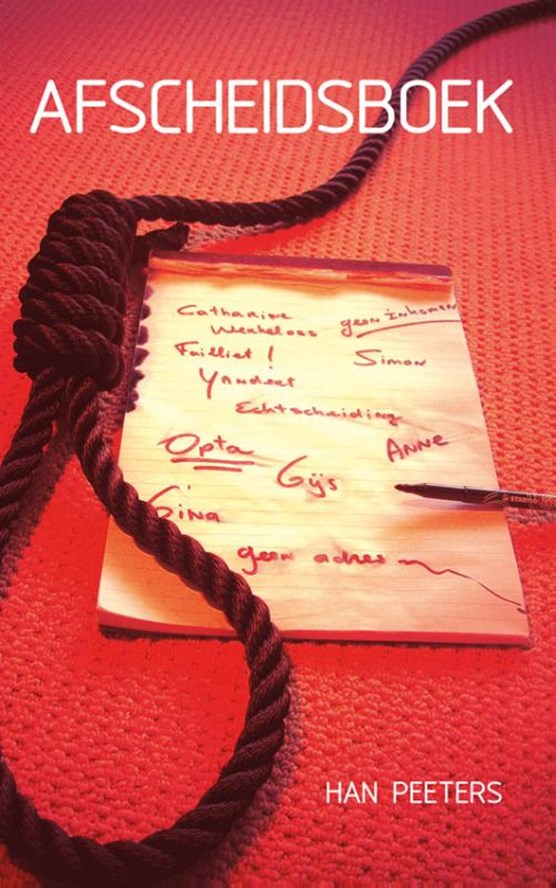 AFSCHEIDSBOEK
Catharine geen inkomen
Werkeloos
Failliet !
Simon
Yandert
Echtscheiding
Anne
Opta
Gijs
Gina
geen adres
HAN PEETERS